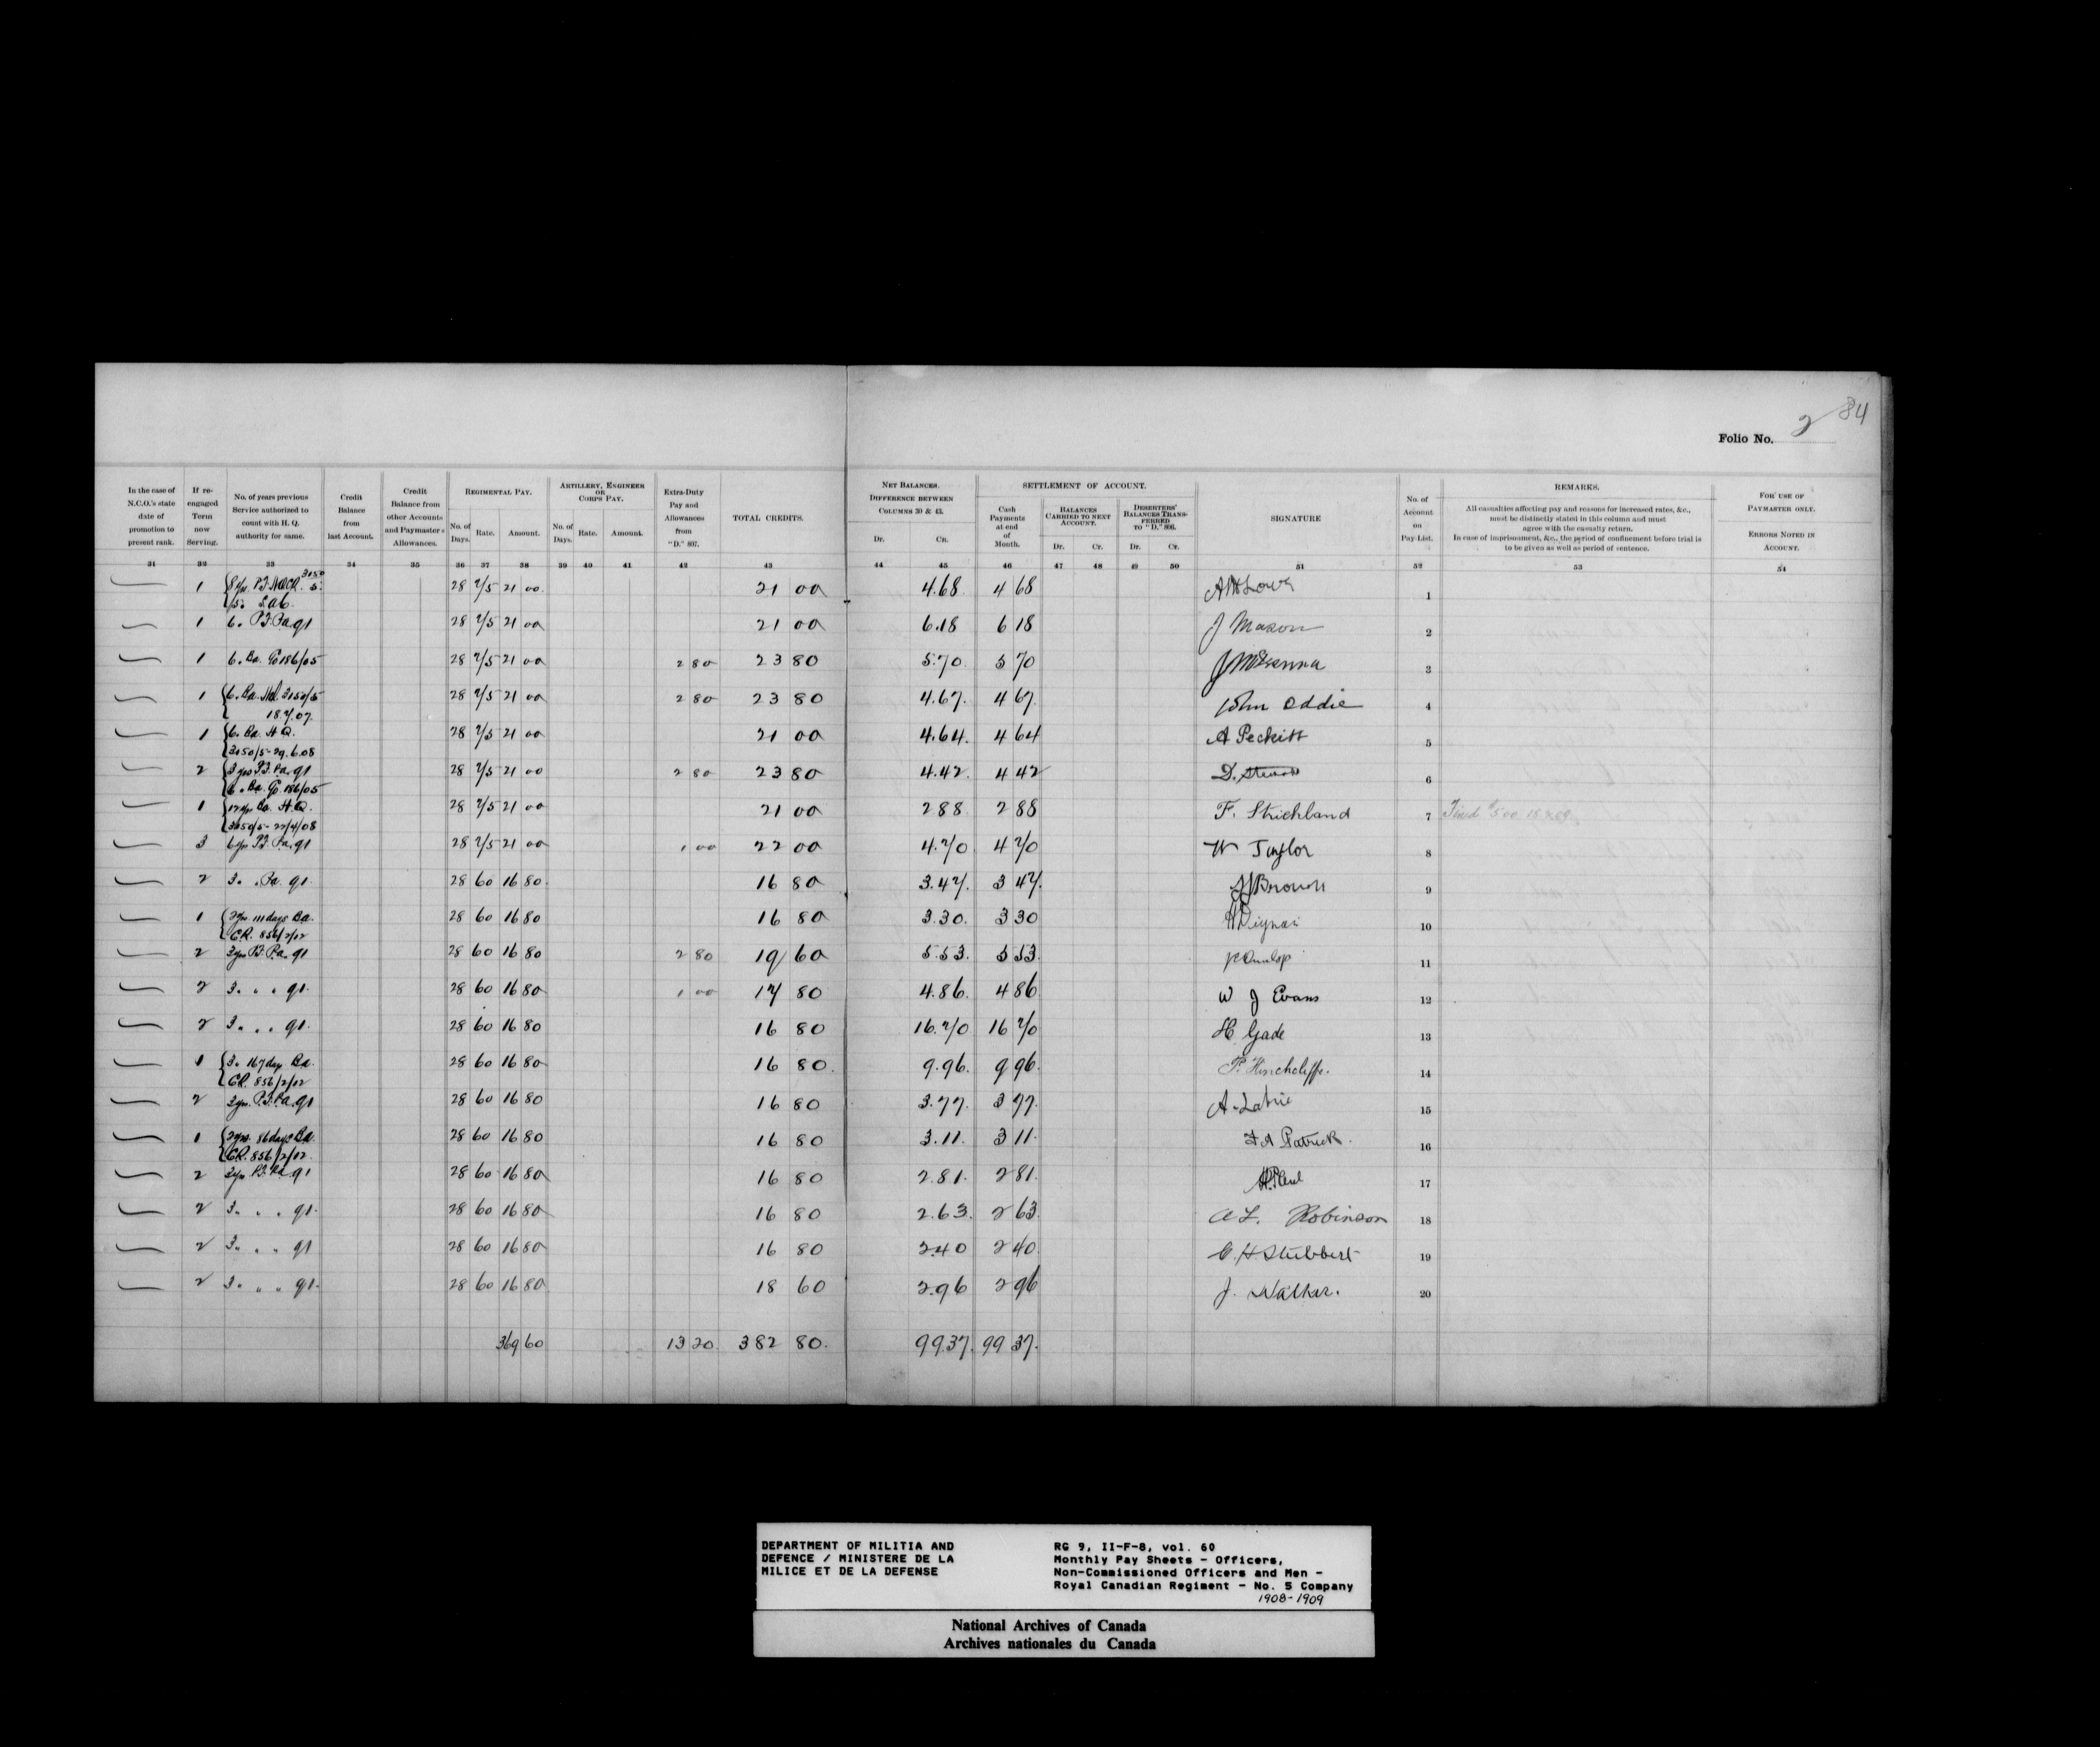 84
Folio No. 2
In the case of N.C.O.'s state date of promotion to present rank.
If re-engaged Term now Serving.
No. of years previous Service authorized to count with H. Q. authority for same.
Credit Balance from last Account.
Credit Balance from other Accounts and Paymaster's Allowances.
REGIMENTAL PAY.
No. of Days. Rate. Amount.
ARTILLERY, ENGINEER OR CORPS PAY.
No. of Days. Rate. Amount.
Extra-Duty Pay and Allowances from "D." 807.
TOTAL CREDITS.
NET BALANCES. DIFFERENCE BETWEEN COLUMNS 30 & 43.
Dr. Cr.
SETTLEMENT OF ACCOUNT.
Cash Payments at end of Month.
BALANCES CARRIED TO NEXT ACCOUNT.
Dr. Cr.
DESERTERS' BALANCES TRANSFERRED TO "D." 806.
Dr. Cr.
SIGNATURE
No. of Account on Pay-List.
REMARKS.
All casualties affecting pay and reasons for increased rates, &c., must be distinctly stated in this column and must agree with the casualty return.
In case of imprisonment, &c., the period of confinement before trial is to be given as well as period of sentence.
FOR USE OF PAYMASTER ONLY.
ERRORS NOTED IN ACCOUNT.
31 32 33 34 35 36 37 38 39 40 41 42 43 44 45 46 47 48 49 50 51 52 53 54
1 28 75 21 00 21 00 4.68 4 68 1
1 6 " P.F. Pa. 91 28 75 21 00 21 00 6.18 6 18 J Mason 2
1 6 " Ba. Go 186/05 28 75 21 00 2 80 23 80 5.70 5 70 J McKenna 3
1 6 " Ba. 3150/5 18.7.07 28 75 21 00 2 80 23 80 4.67 4 67 John Oddie 4
1 6 " Ba. H.Q. 3150/5 - 29.6.08 28 75 21 00 21 00 4.64 4 64 A Peckitt 5
2 3 yrs P.F. Pa. 91 6 " Ba. Go. 186/05 28 75 21 00 2 80 23 80 4.42 4 42 D. Stewart 6
1 Ba. H.Q. 3150/5 - 22/4/08 28 75 21 00 21 00 2 88 2 88 F. Strickland 7 Fined $5.00
3 6 yrs P.F. Pa. 91 28 75 21 00 1 00 22 00 4.70 4 70 W Taylor 8
2 3 " " Pa. 91 28 60 16 80 16 80 3.47 3 47 Brown 9
1 2 yrs. 111 days Ba. C.R. 856/2/02 28 60 16 80 16 80 3.30 3 30 10
2 3 yrs P.F. Pa. 91 28 60 16 80 2 80 19 60 5.53 5 53 Dunlop 11
2 3 " " " 91 28 60 16 80 1 00 17 80 4.86 4 86 W J Evans 12
2 3 " " " 91 28 60 16 80 16 80 16.70 16 70 H. Gade 13
1 3 " 167 days Ba. C.R. 856/2/02 28 60 16 80 16 80 9.96 9 96 P. Hinchcliffe. 14
2 3 yrs. P.F. Pa. 91 28 60 16 80 16 80 3.77 3 77 A. 15
1 2 yrs. 86 days Ba. C.R. 856/2/02 28 60 16 80 16 80 3.11 3 11 Patrick. 16
2 3 yrs P.F. Pa. 91 28 60 16 80 16 80 2.81 2 81 H. Paul 17
2 3 " " " 91 28 60 16 80 16 80 2.63 2 63 A L. Robinson 18
2 3 " " " 91 28 60 16 80 16 80 2.40 2 40 C. H. Stubbert 19
2 3 " " " 91 28 60 16 80 18 60 2.96 2 96 J. Walker. 20
369 60 13 20 382 80 99.37 99 37
DEPARTMENT OF MILITIA AND
DEFENCE / MINISTERE DE LA
MILICE ET DE LA DEFENSE
RG 9, II-F-8, vol. 60
Monthly Pay Sheets - Officers,
Non-Commissioned Officers and Men -
Royal Canadian Regiment - No. 5 Company
1908-1909
National Archives of Canada
Archives nationales du Canada